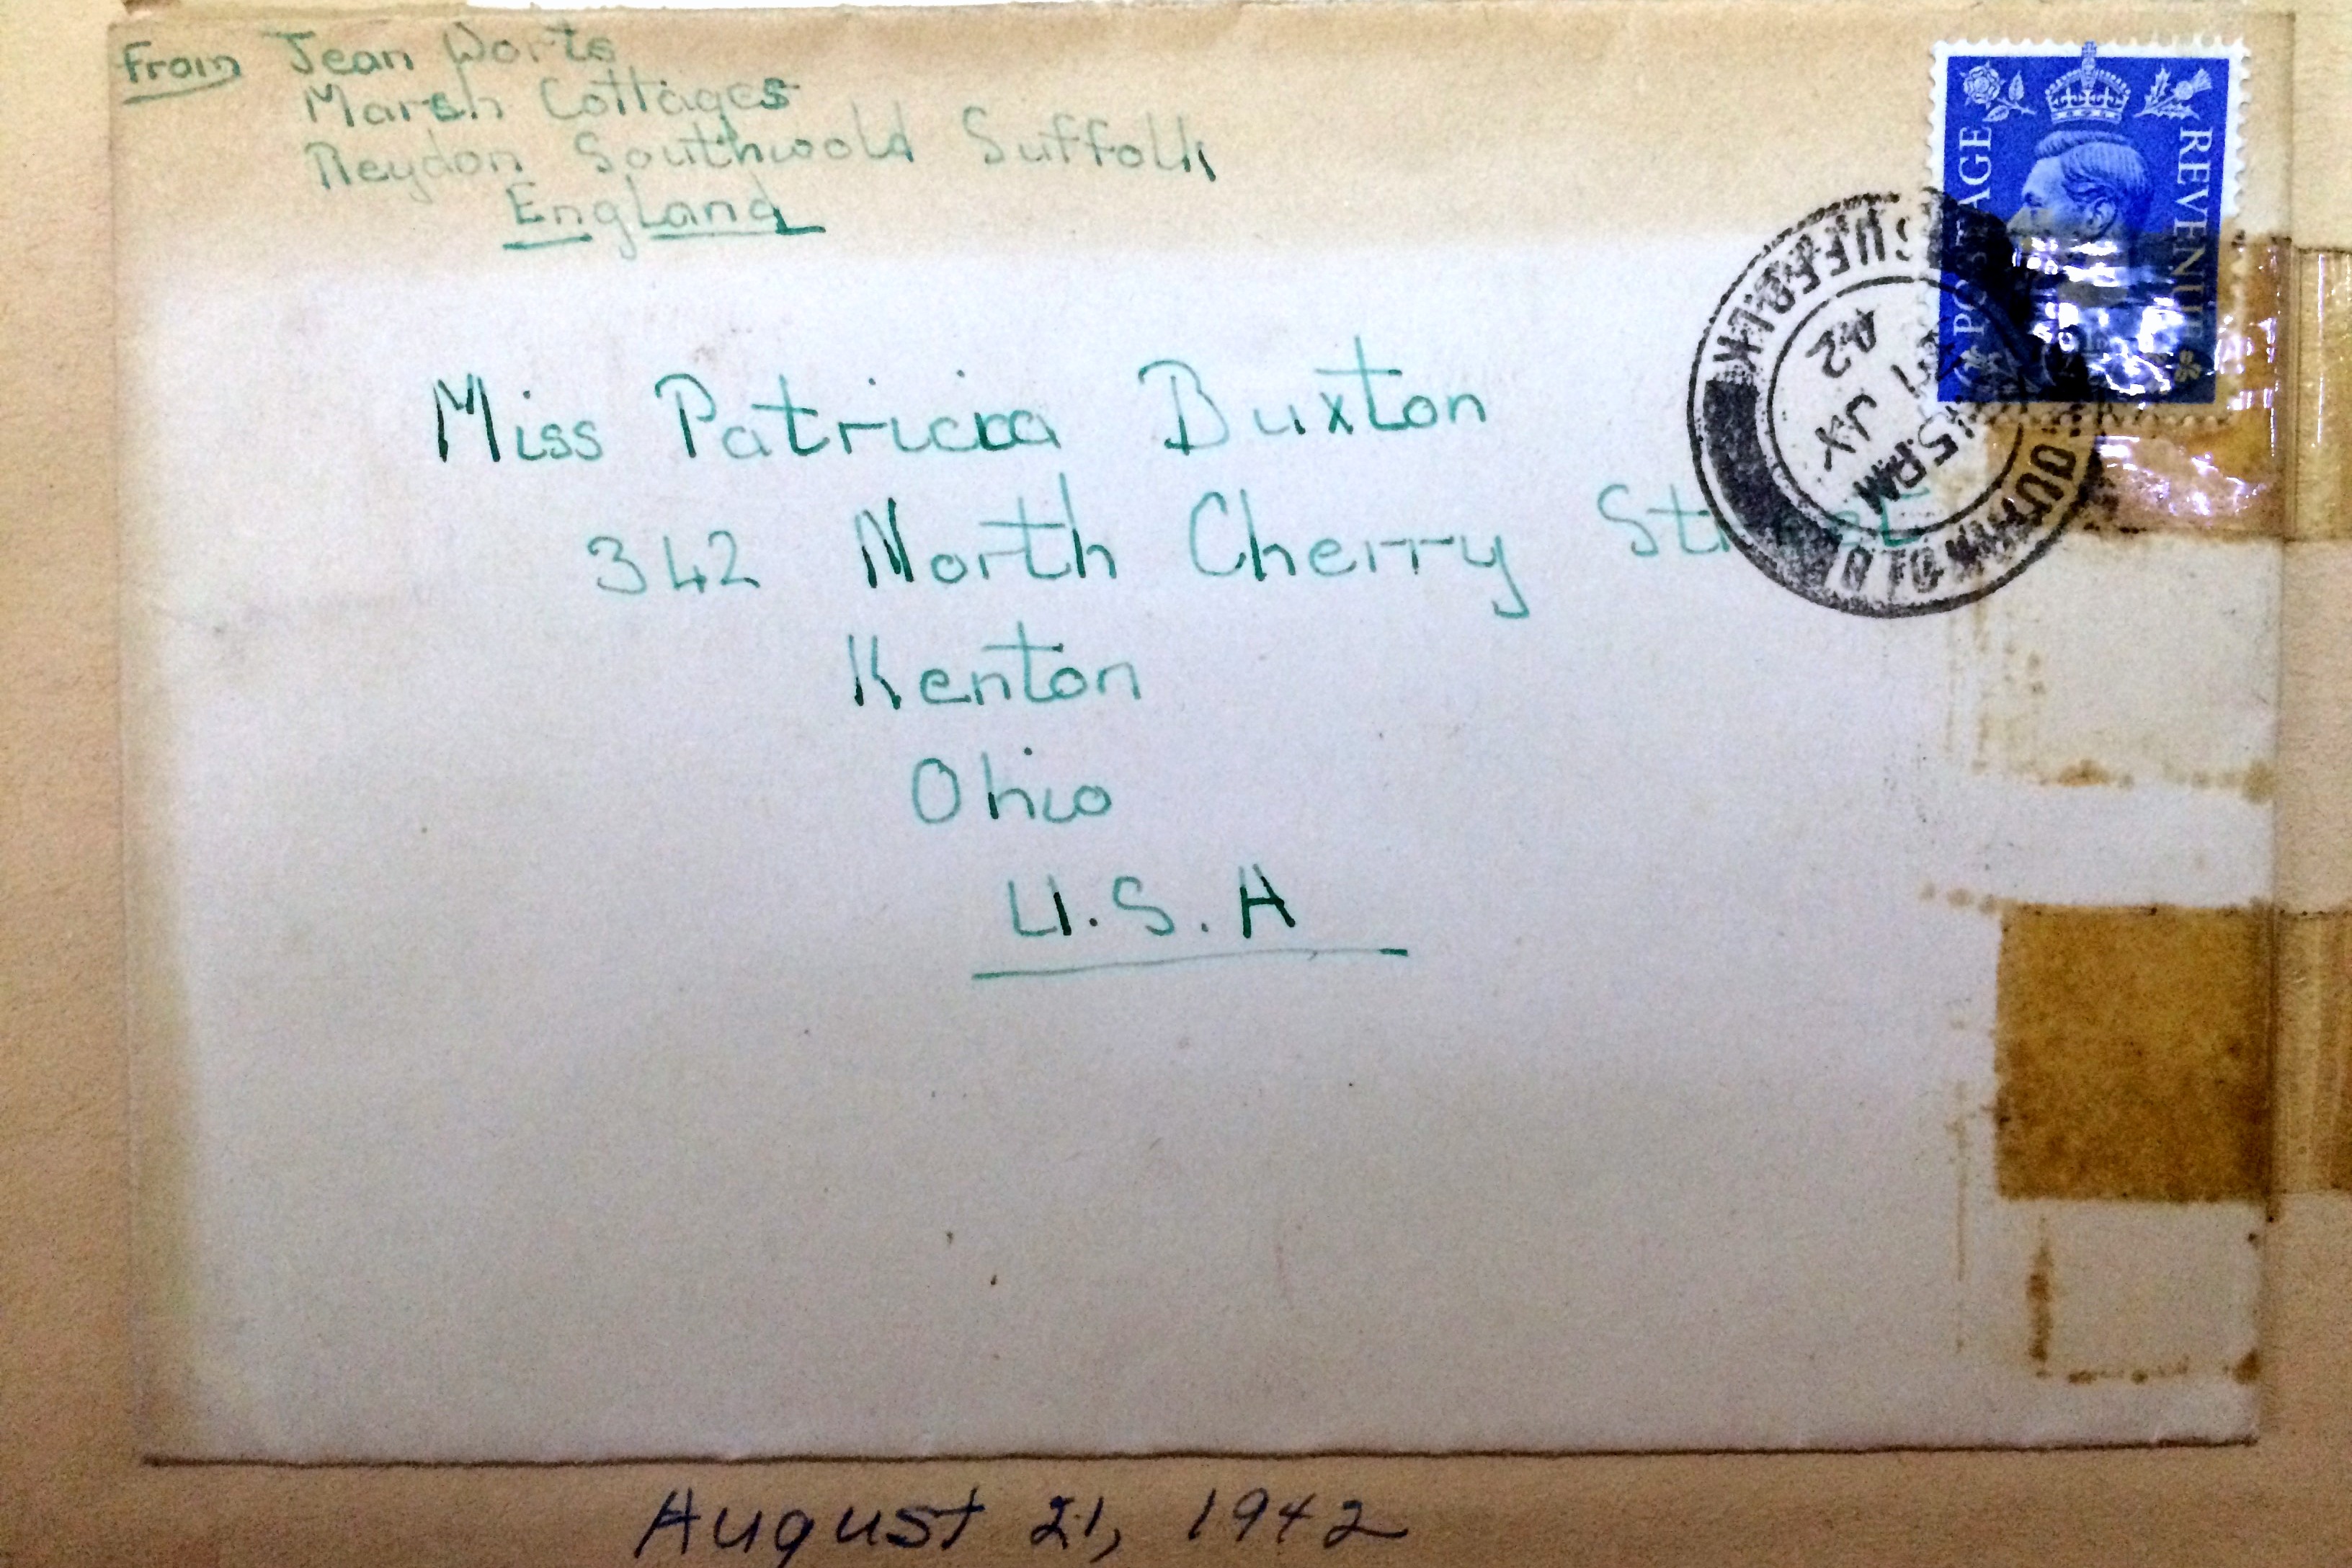 From Jean Worts
Marsh Cottages
Reydon Southwold Suffolk
England
POSTAGE
REVENUE
SOUTHWOLD
SUFFOLK
15 PM
JY
42
Miss Patricia Buxton
342 North Cherry Street
Kenton
Ohio
U.S.A
August 21, 1942